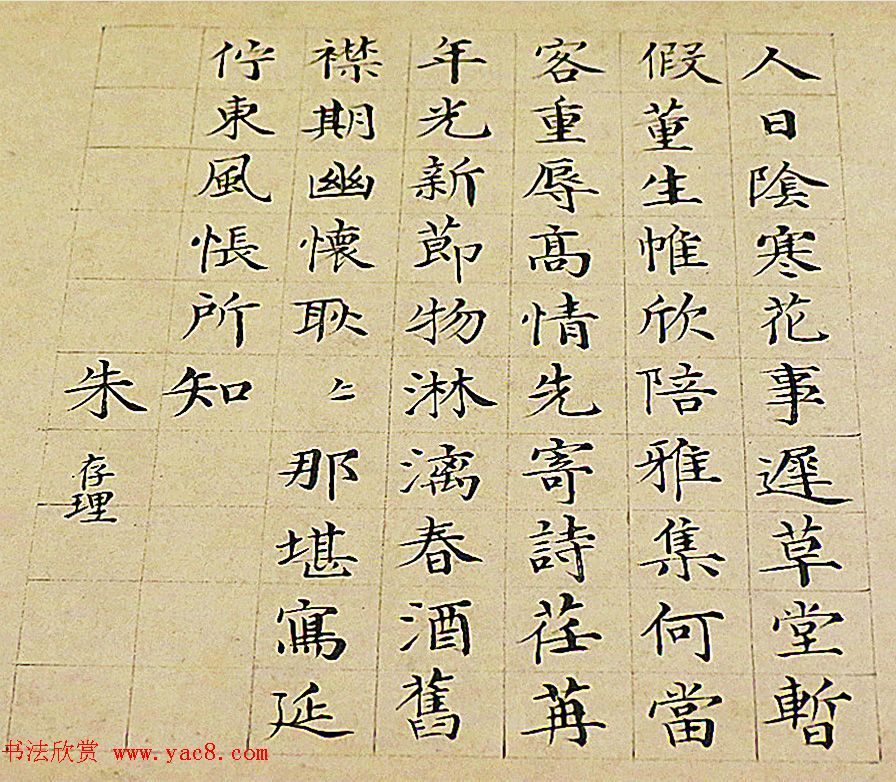 人日陰寒花事遲草堂暫
假董生帷欣陪雅集何當
客重辱高情先寄詩荏苒
年光新節物淋漓春酒舊
襟期幽懷耿〻那堪寫延
佇東風悵所知
朱存理
书法欣赏 www.yac8.com